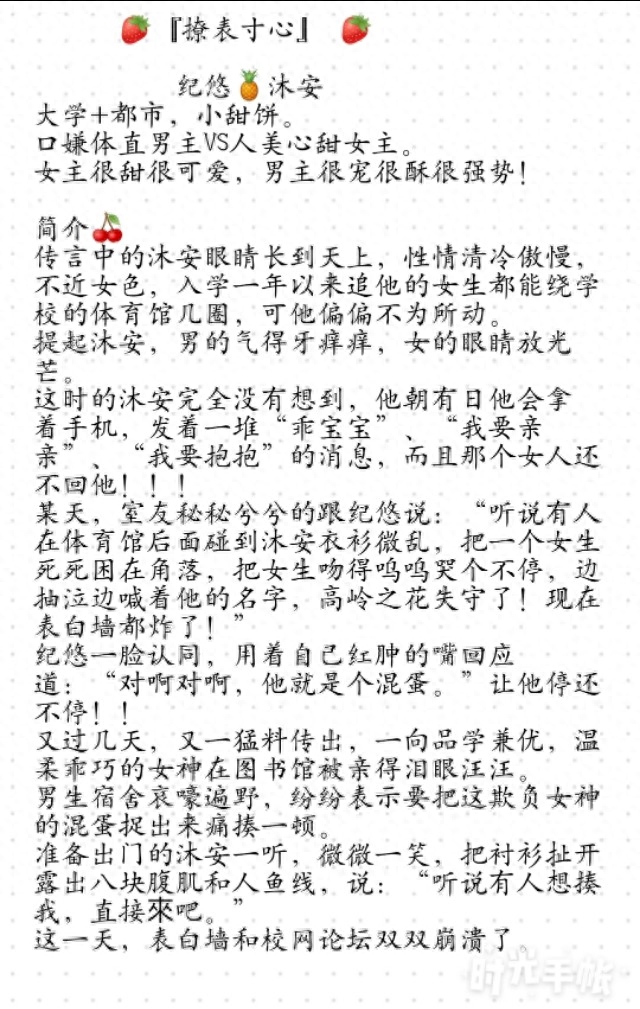 『撩表寸心』
纪悠🍍沐安
大学+都市，小甜饼。
口嫌体直男主VS人美心甜女主。
女主很甜很可爱，男主很宠很酥很强势！
简介🍒
传言中的沐安眼睛长到天上，性情清冷傲慢，
不近女色，入学一年以来追他的女生都能绕学
校的体育馆几圈，可他偏偏不为所动。
提起沐安，男的气得牙痒痒，女的眼睛放光
芒。
这时的沐安完全没有想到，他朝有日他会拿
着手机，发着一堆“乖宝宝”、“我要亲
亲”、“我要抱抱”的消息，而且那个女人还
不回他！！！
某天，室友秘秘兮兮的跟纪悠说：“听说有人
在体育馆后面碰到沐安衣衫微乱，把一个女生
死死困在角落，把女生吻得呜呜哭个不停，边
抽泣边喊着他的名字，高岭之花失守了！现在
表白墙都炸了！”
纪悠一脸认同，用着自己红肿的嘴回应
道：“对啊对啊，他就是个混蛋。”让他停还
不停！！
又过几天，又一猛料传出，一向品学兼优，温
柔乖巧的女神在图书馆被亲得泪眼汪汪。
男生宿舍哀嚎遍野，纷纷表示要把这欺负女神
的混蛋捉出来痛揍一顿。
准备出门的沐安一听，微微一笑，把衬衫扯开
露出八块腹肌和人鱼线，说：“听说有人想揍
我，直接來吧。”
这一天，表白墙和校网论坛双双崩溃了。
时光手帐